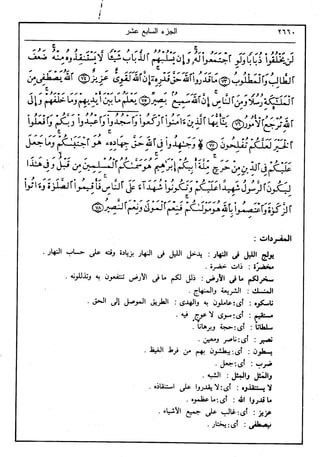 ٢٦٦٠ الجزء السابع عشر
لَن يَخْلُقُوا۟ ذُبَابًا وَلَوِ ٱجْتَمَعُوا۟ لَهُۥ وَإِن يَسْلُبْهُمُ ٱلذُّبَابُ شَيْـًٔا لَّا يَسْتَنقِذُوهُ مِنْهُ ضَعُفَ
ٱلطَّالِبُ وَٱلْمَطْلُوبُ ﴿٧٣﴾ مَا قَدَرُوا۟ ٱللَّهَ حَقَّ قَدْرِهِۦٓ إِنَّ ٱللَّهَ لَقَوِىٌّ عَزِيزٌ ﴿٧٤﴾ ٱللَّهُ يَصْطَفِى مِنَ
ٱلْمَلَـٰٓئِكَةِ رُسُلًا وَمِنَ ٱلنَّاسِ إِنَّ ٱللَّهَ سَمِيعٌۢ بَصِيرٌ ﴿٧٥﴾ يَعْلَمُ مَا بَيْنَ أَيْدِيهِمْ وَمَا خَلْفَهُمْ وَإِلَى
ٱللَّهِ تُرْجَعُ ٱلْأُمُورُ ﴿٧٦﴾ يَـٰٓأَيُّهَا ٱلَّذِينَ ءَامَنُوا۟ ٱرْكَعُوا۟ وَٱسْجُدُوا۟ وَٱعْبُدُوا۟ رَبَّكُمْ وَٱفْعَلُوا۟
ٱلْخَيْرَ لَعَلَّكُمْ تُفْلِحُونَ ﴿٧٧﴾ وَجَـٰهِدُوا۟ فِى ٱللَّهِ حَقَّ جِهَادِهِۦ هُوَ ٱجْتَبَىٰكُمْ وَمَا جَعَلَ
عَلَيْكُمْ فِى ٱلدِّينِ مِنْ حَرَجٍ مِّلَّةَ أَبِيكُمْ إِبْرَٰهِيمَ هُوَ سَمَّىٰكُمُ ٱلْمُسْلِمِينَ مِن قَبْلُ وَفِى هَـٰذَا
لِيَكُونَ ٱلرَّسُولُ شَهِيدًا عَلَيْكُمْ وَتَكُونُوا۟ شُهَدَآءَ عَلَى ٱلنَّاسِ فَأَقِيمُوا۟ ٱلصَّلَوٰةَ وَءَاتُوا۟
ٱلزَّكَوٰةَ وَٱعْتَصِمُوا۟ بِٱللَّهِ هُوَ مَوْلَىٰكُمْ فَنِعْمَ ٱلْمَوْلَىٰ وَنِعْمَ ٱلنَّصِيرُ ﴿٧٨﴾
المفردات :
يولج الليل فى النهار : يدخل الليل فى النهار بزيادة وقته على حساب النهار .
مخضرة : ذات خضرة .
سخر لكم ما فى الأرض : ذلل لكم ما فى الأرض تنتفعون به وتذللونه .
المنسك : الشريعة والمنهاج .
ناسكوه : أى: عاملون به والهدى : الطريق الموصل إلى الحق .
مستقيم : أى: سوى لا عوج فيه .
سلطانًا : أى: حجة وبرهانًا .
نصير : أى: ناصر ومعين .
يسطون : أى: يبطشون بهم من فرط الغيظ .
ضرب : أى: جعل .
والمَثل والمِثل : الشبه .
لا يستنقذوه : أى: لا يقدروا على استنقاذه .
ما قدروا الله : أى: ما عظموه .
عزيز : أى: غالب على جميع الأشياء .
يصطفى : أى: يختار .